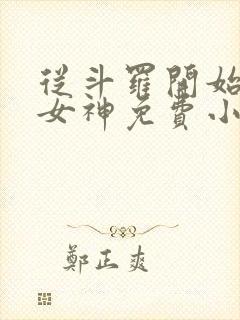 從斗羅開始
女神免費小
鄭正爽